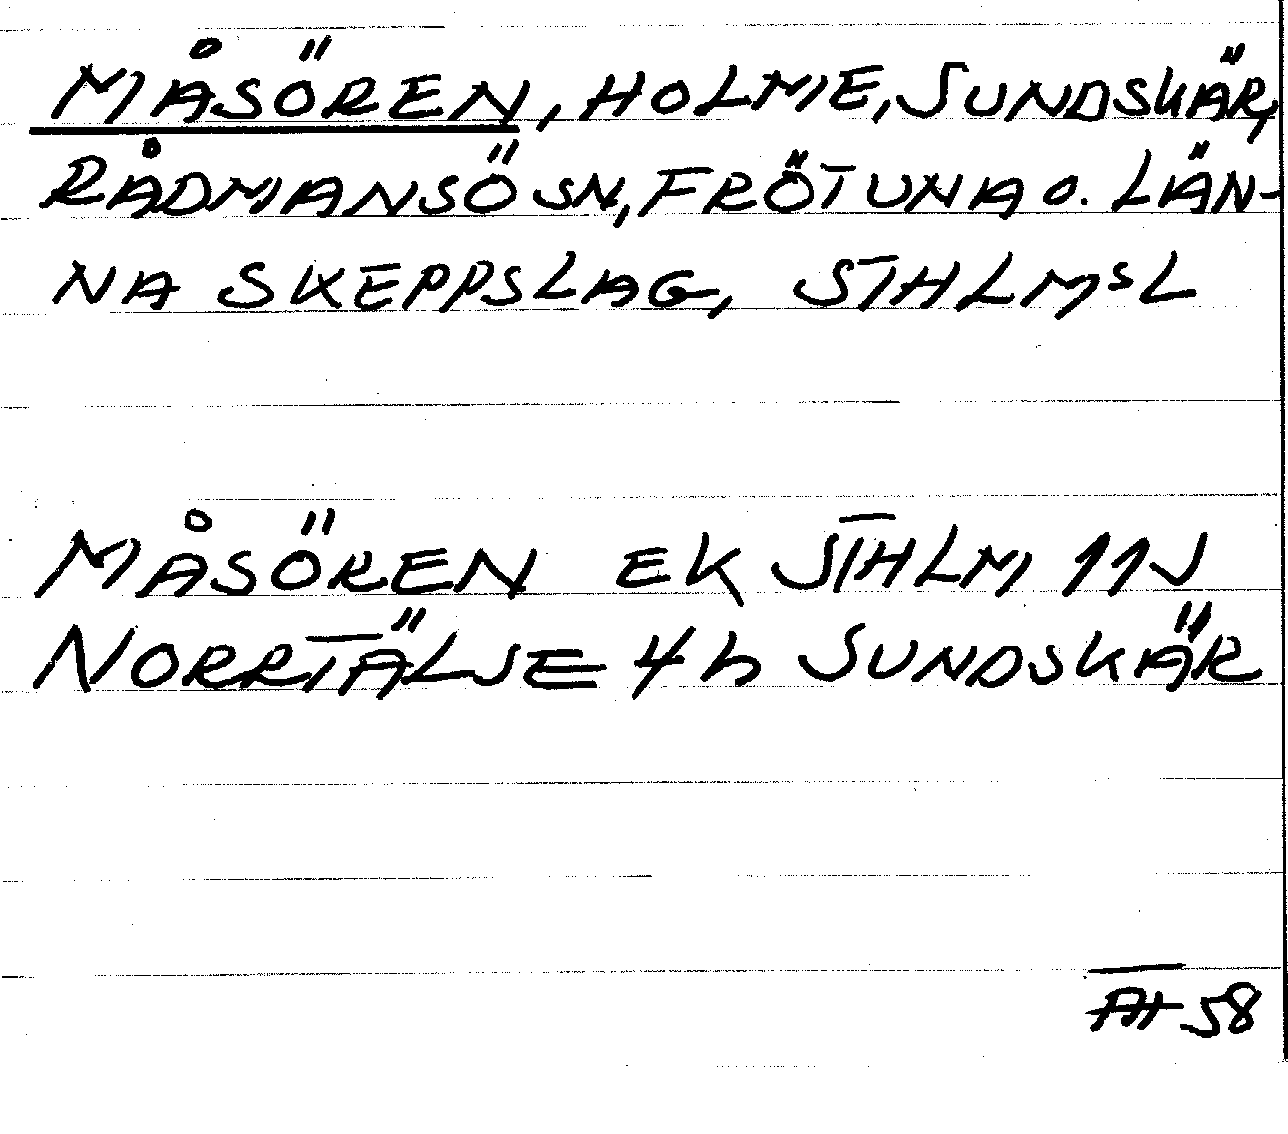 MÅSÖREN, HOLME, SUNDSKÄR,
RÅDMANSÖ SN, FRÖTUNA O. LÄN-
NA SKEPPSLAG, STHLMSL
MÅSÖREN EK STHLM 11J
NORRTÄLJE 4h SUNDSKÄR
58